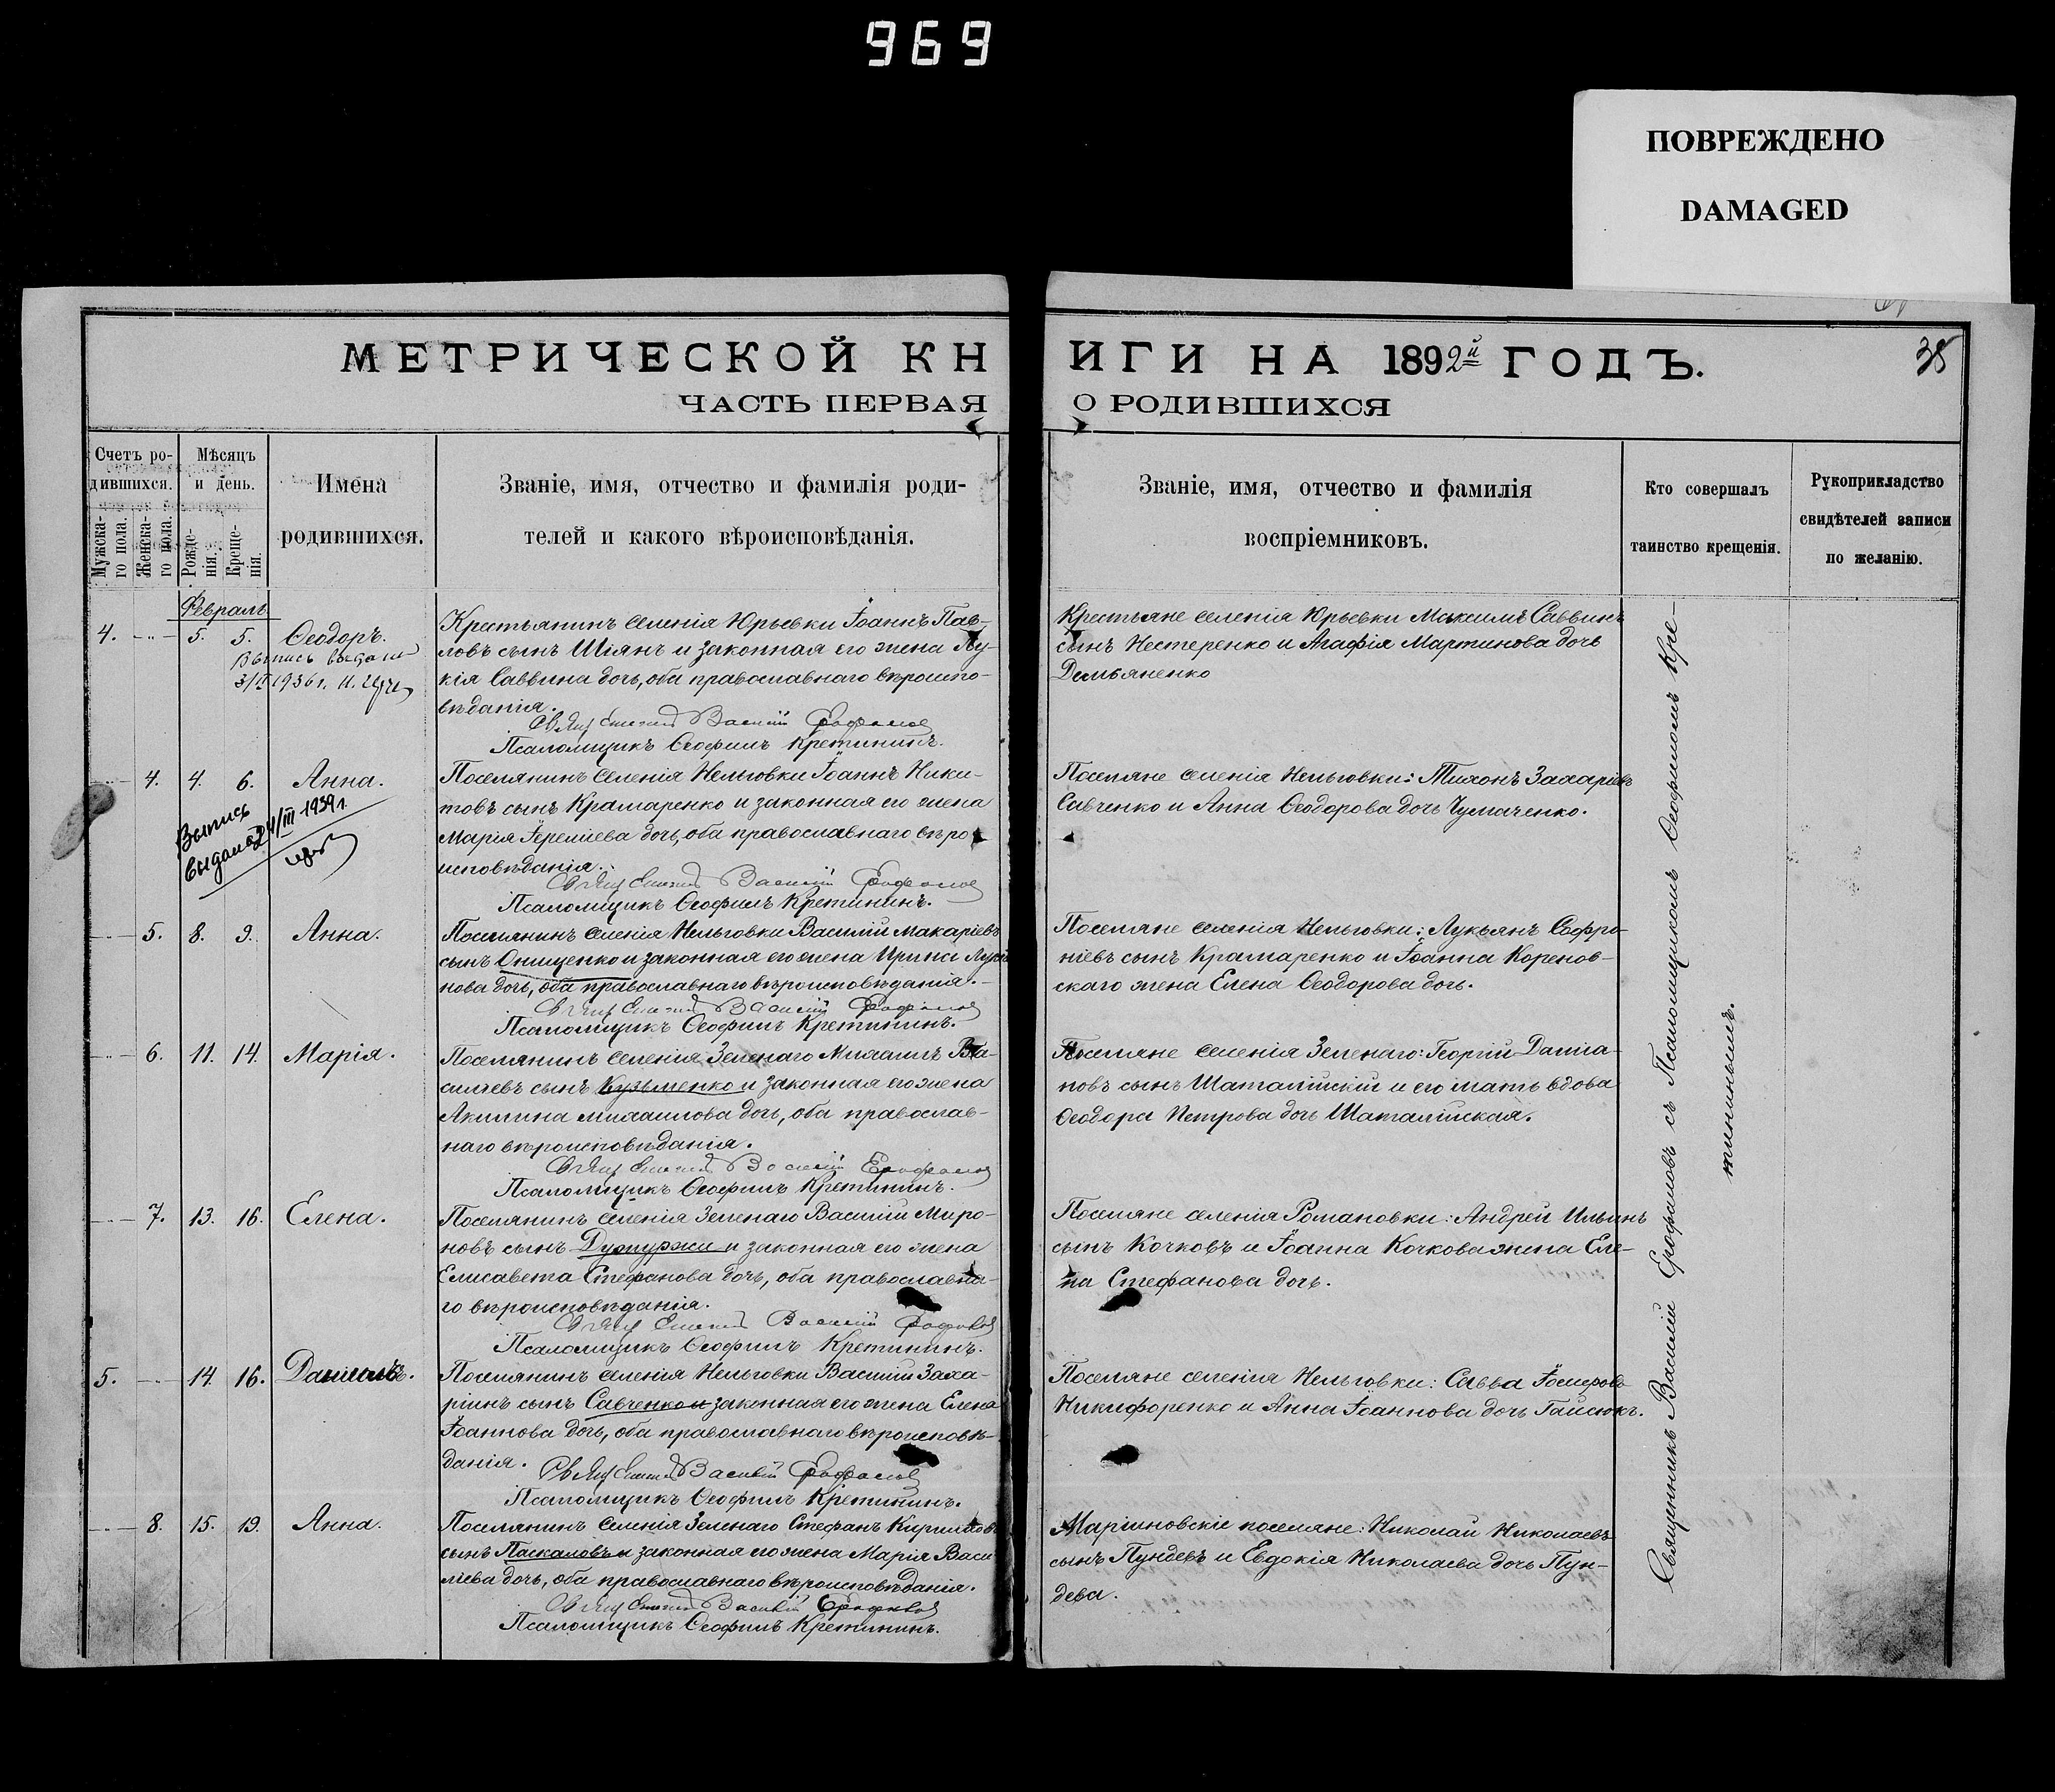 969
ПОВРЕЖДЕНО
DAMAGED
МЕТРИЧЕСКОЙ КН
ЧАСТЬ ПЕРВАЯ
ИГИ НА 1892й ГОДЪ.
О РОДИВШИХСЯ
38
Счетъ ро-
дившихся.
Мужска-
го пола.
Женска-
го пола.
Мѣсяцъ
и день.
Рожде-
нія.
Креще-
нія.
Имена
родившихся.
Званіе, имя, отчество и фамилія роди-
телей и какого вѣроисповѣданія.
Званіе, имя, отчество и фамилія
воспріемниковъ.
Кто совершалъ
таинство крещенія.
Рукоприкладство
свидѣтелей записи
по желанію.
Февраль
4. 5. 5. Ѳеодоръ.
Выпись выдана
3/IV 1936 г.
Крестьянинъ селенія Юрьевки Іоаннъ Пав-
ловъ сынъ Шіянъ и законная его жена Лу-
кія Саввина дочь, оба православнаго вѣроиспо-
вѣданія.
Василій
Псаломщикъ Ѳеофилъ Кретининъ.
Крестьяне селенія Юрьевки Максимъ Саввинъ
сынъ Нестеренко и Агафія Мартинова дочь
Демьяненко
4. 4. 6. Анна.
Выпись
выдана 24/III 1939 г.
Поселянинъ селенія Нельговки Іоаннъ Ники-
товъ сынъ Крамаренко и законная его жена
Марія Іереміева дочь, оба православнаго вѣро
исповѣданія.
Василій
Псаломщикъ Ѳеофилъ Кретининъ.
Поселяне селенія Нельговки: Тихонъ Захаріевъ
Савченко и Анна Ѳеодорова дочь Чумаченко.
5. 8. 9. Анна.
Поселянинъ селенія Нельговки Василій Макаріевъ
сынъ Онищенко и законная его жена Ирина
нова дочь, оба православнаго вѣроисповѣданія.
Василій
Псаломщикъ Ѳеофилъ Кретининъ.
Поселяне селенія Нельговки: Лукьянъ Софро-
ніевъ сынъ Крамаренко и Іоанна Коренов-
скаго жена Елена Ѳеодорова дочь.
6. 11. 14. Марія.
Поселянинъ селенія Зеленаго Михаилъ Ва-
силіевъ сынъ Кузьменко и законная его жена
Акилина Михаилова дочь, оба православ-
наго вѣроисповѣданія.
Василій
Псаломщикъ Ѳеофилъ Кретининъ.
Поселяне селенія Зеленаго: Георгій Даміа-
новъ сынъ Шаталійскій и его мать вдова
Ѳеодора Петрова дочь Шаталійская.
7. 13. 16. Елена.
Поселянинъ селенія Зеленаго Василій Миро-
новъ сынъ и законная его жена
Елисавета Стефанова дочь, оба православна-
го вѣроисповѣданія.
Василій
Псаломщикъ Ѳеофилъ Кретининъ.
Поселяне селенія Романовки: Андрей Ильинъ
сынъ Кочковъ и Іоанна Кочкова жена Еле-
на Стефанова дочь.
5. 14. 16. Даніилъ.
Поселянинъ селенія Нельговки Василій Заха-
ріинъ сынъ Савченко и законная его жена Елена
Іоаннова дочь, оба православнаго вѣроисповѣ-
данія.
Василій
Псаломщикъ Ѳеофилъ Кретининъ.
Поселяне селенія Нельговки: Савва
Никифоренко и Анна Іоаннова дочь Гайсюкъ.
8. 15. 19. Анна.
Поселянинъ селенія Зеленаго Стефанъ Кирилловъ
сынъ Паскаловъ и законная его жена Марія Васи
ліева дочь, оба православнаго вѣроисповѣданія.
Василій
Псаломщикъ Ѳеофилъ Кретининъ.
Маріиновскіе поселяне: Николай Николаевъ
сынъ Пундевъ и Евдокія Николаева дочь Пун-
дева.
Священникъ Василій Ерофаловъ съ Псаломщикомъ Ѳеофиломъ Кре-
тининымъ.